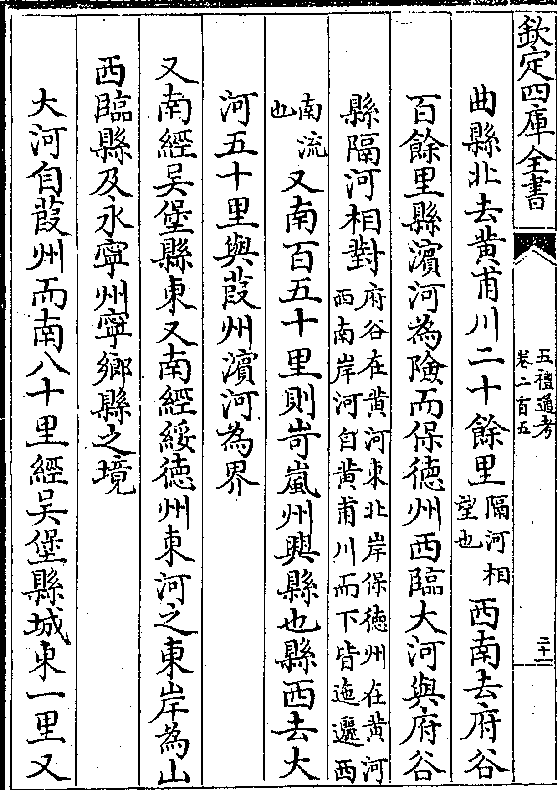 欽定四庫全書
五禮通考
卷二百五
二十一
曲縣北去黄甫川二十餘里隔河相望也西南去府谷
百餘里縣濵河為險而保徳州西臨大河與府谷
縣隔河相對府谷在黄河東北岸保徳州在黄河西南岸河自黄甫川而下皆迤邐西
南流也又南百五十里則岢嵐州興縣也縣西去大
河五十里與葭州濵河為界
又南經吴堡縣東又南經綏徳州東河之東岸為山
西臨縣及永寧州寧鄉縣之境
大河自葭州而南八十里經吴堡縣城東一里又